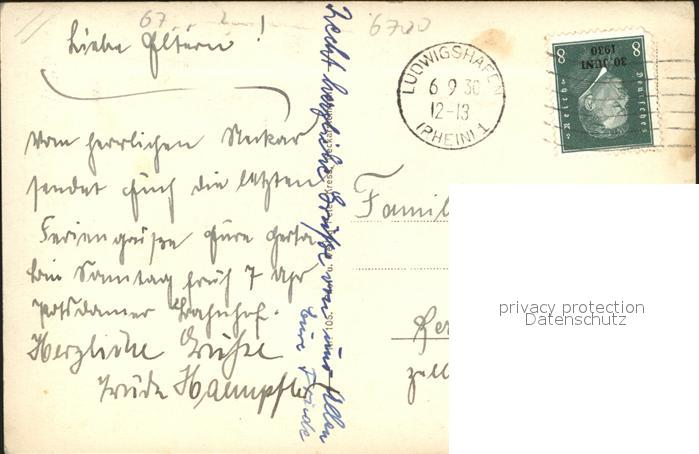 67
6700
Liebe Eltern!
Vom herrlichen Neckar
sendet Euch die letzten
Feriengrüße Eure
Bin Sonntag früh 7 Uhr
Potsdamer Bahnhof.
Herzliche Grüße
Trude Haempfle
Recht herzliche Grüße von
Allen
Eure
LUDWIGSHAFEN
6 9 30
12-13
(RHEIN) 1
8 8
30. JUNI
1930
Deutsches Reich
Famil
Ber
privacy protection
Datenschutz